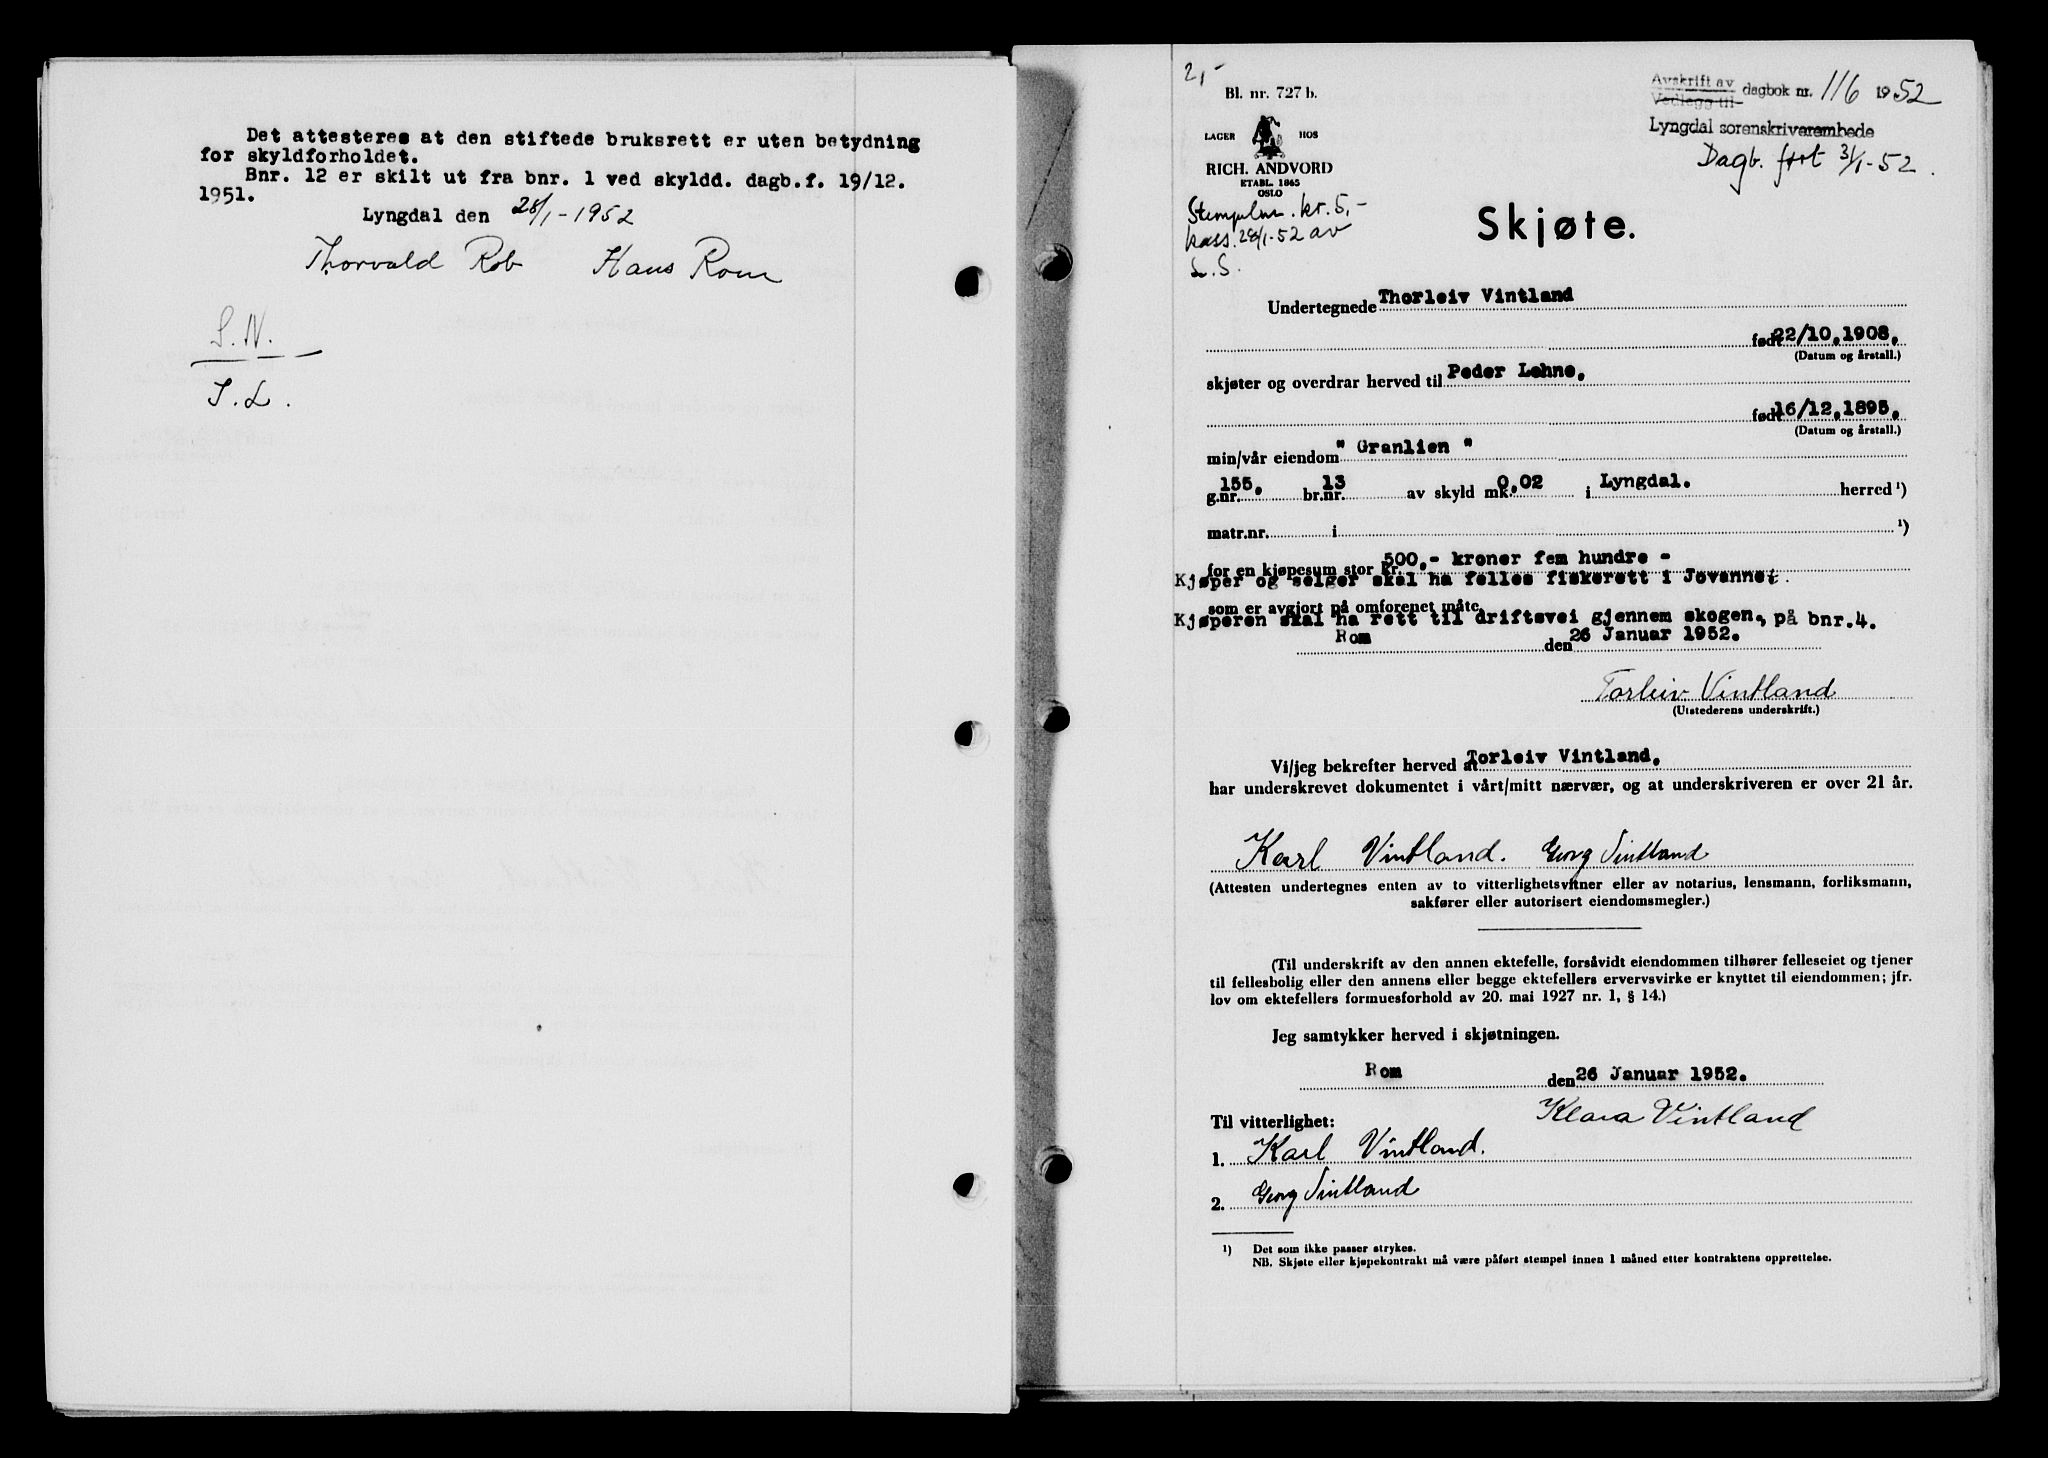 Det attesteres at den stiftede bruksrett er uten betydning
for skyldforholdet.
Bnr. 12 er skilt ut fra bnr. 1 ved skyldd. dagb.f. 19/12.
1951.
Lyngdal den 28/1-1952
Thorvald Rob Hans Rom
S.N.
T.L.
2,-
Bl. nr. 727 b.
LAGER HOS
RICH. ANDVORD
ETABL. 1865
OSLO
Stempelm. kr. 5,-
kass. 28/1-52 av
L.S.
Avskrift av
Vedlegg til dagbok nr. 116 1952
Lyngdal sorenskriverembede
Dagb. ført 31/1-52.
Skjøte.
Undertegnede Thorleiv Vintland
født 22/10.1908.
(Datum og årstall.)
skjøter og overdrar herved til Peder Lehne,
født 16/12.1895.
(Datum og årstall.)
min/vår eiendom " Granlien "
g.nr. 155. br.nr. 13 av skyld mk. 0.02 i Lyngdal. herred ¹)
matr.nr. i ¹)
for en kjøpesum stor kr. 500,- kroner fem hundre -
Kjøper og selger skal ha felles fiskerett i Jovannet.
som er avgjort på omforenet måte.
Kjøperen skal ha rett til driftsvei gjennem skogen, på bnr.4.
Rom den 26 Januar 1952.
Torleiv Vintland
(Utstederens underskrift.)
Vi/jeg bekrefter herved at Torleiv Vintland,
har underskrevet dokumentet i vårt/mitt nærvær, og at underskriveren er over 21 år.
Karl Vintland. Georg Vintland
(Attesten undertegnes enten av to vitterlighetsvitner eller av notarius, lensmann, forliksmann,
sakfører eller autorisert eiendomsmegler.)
(Til underskrift av den annen ektefelle, forsåvidt eiendommen tilhører felleseiet og tjener
til fellesbolig eller den annens eller begge ektefellers ervervsvirke er knyttet til eiendommen; jfr.
lov om ektefellers formuesforhold av 20. mai 1927 nr. 1, § 14.)
Jeg samtykker herved i skjøtningen.
Rom den 26 Januar 1952.
Klara Vintland
Til vitterlighet:
1. Karl Vintland.
2. Georg Vintland
¹) Det som ikke passer strykes.
NB. Skjøte eller kjøpekontrakt må være påført stempel innen 1 måned etter kontraktens opprettelse.